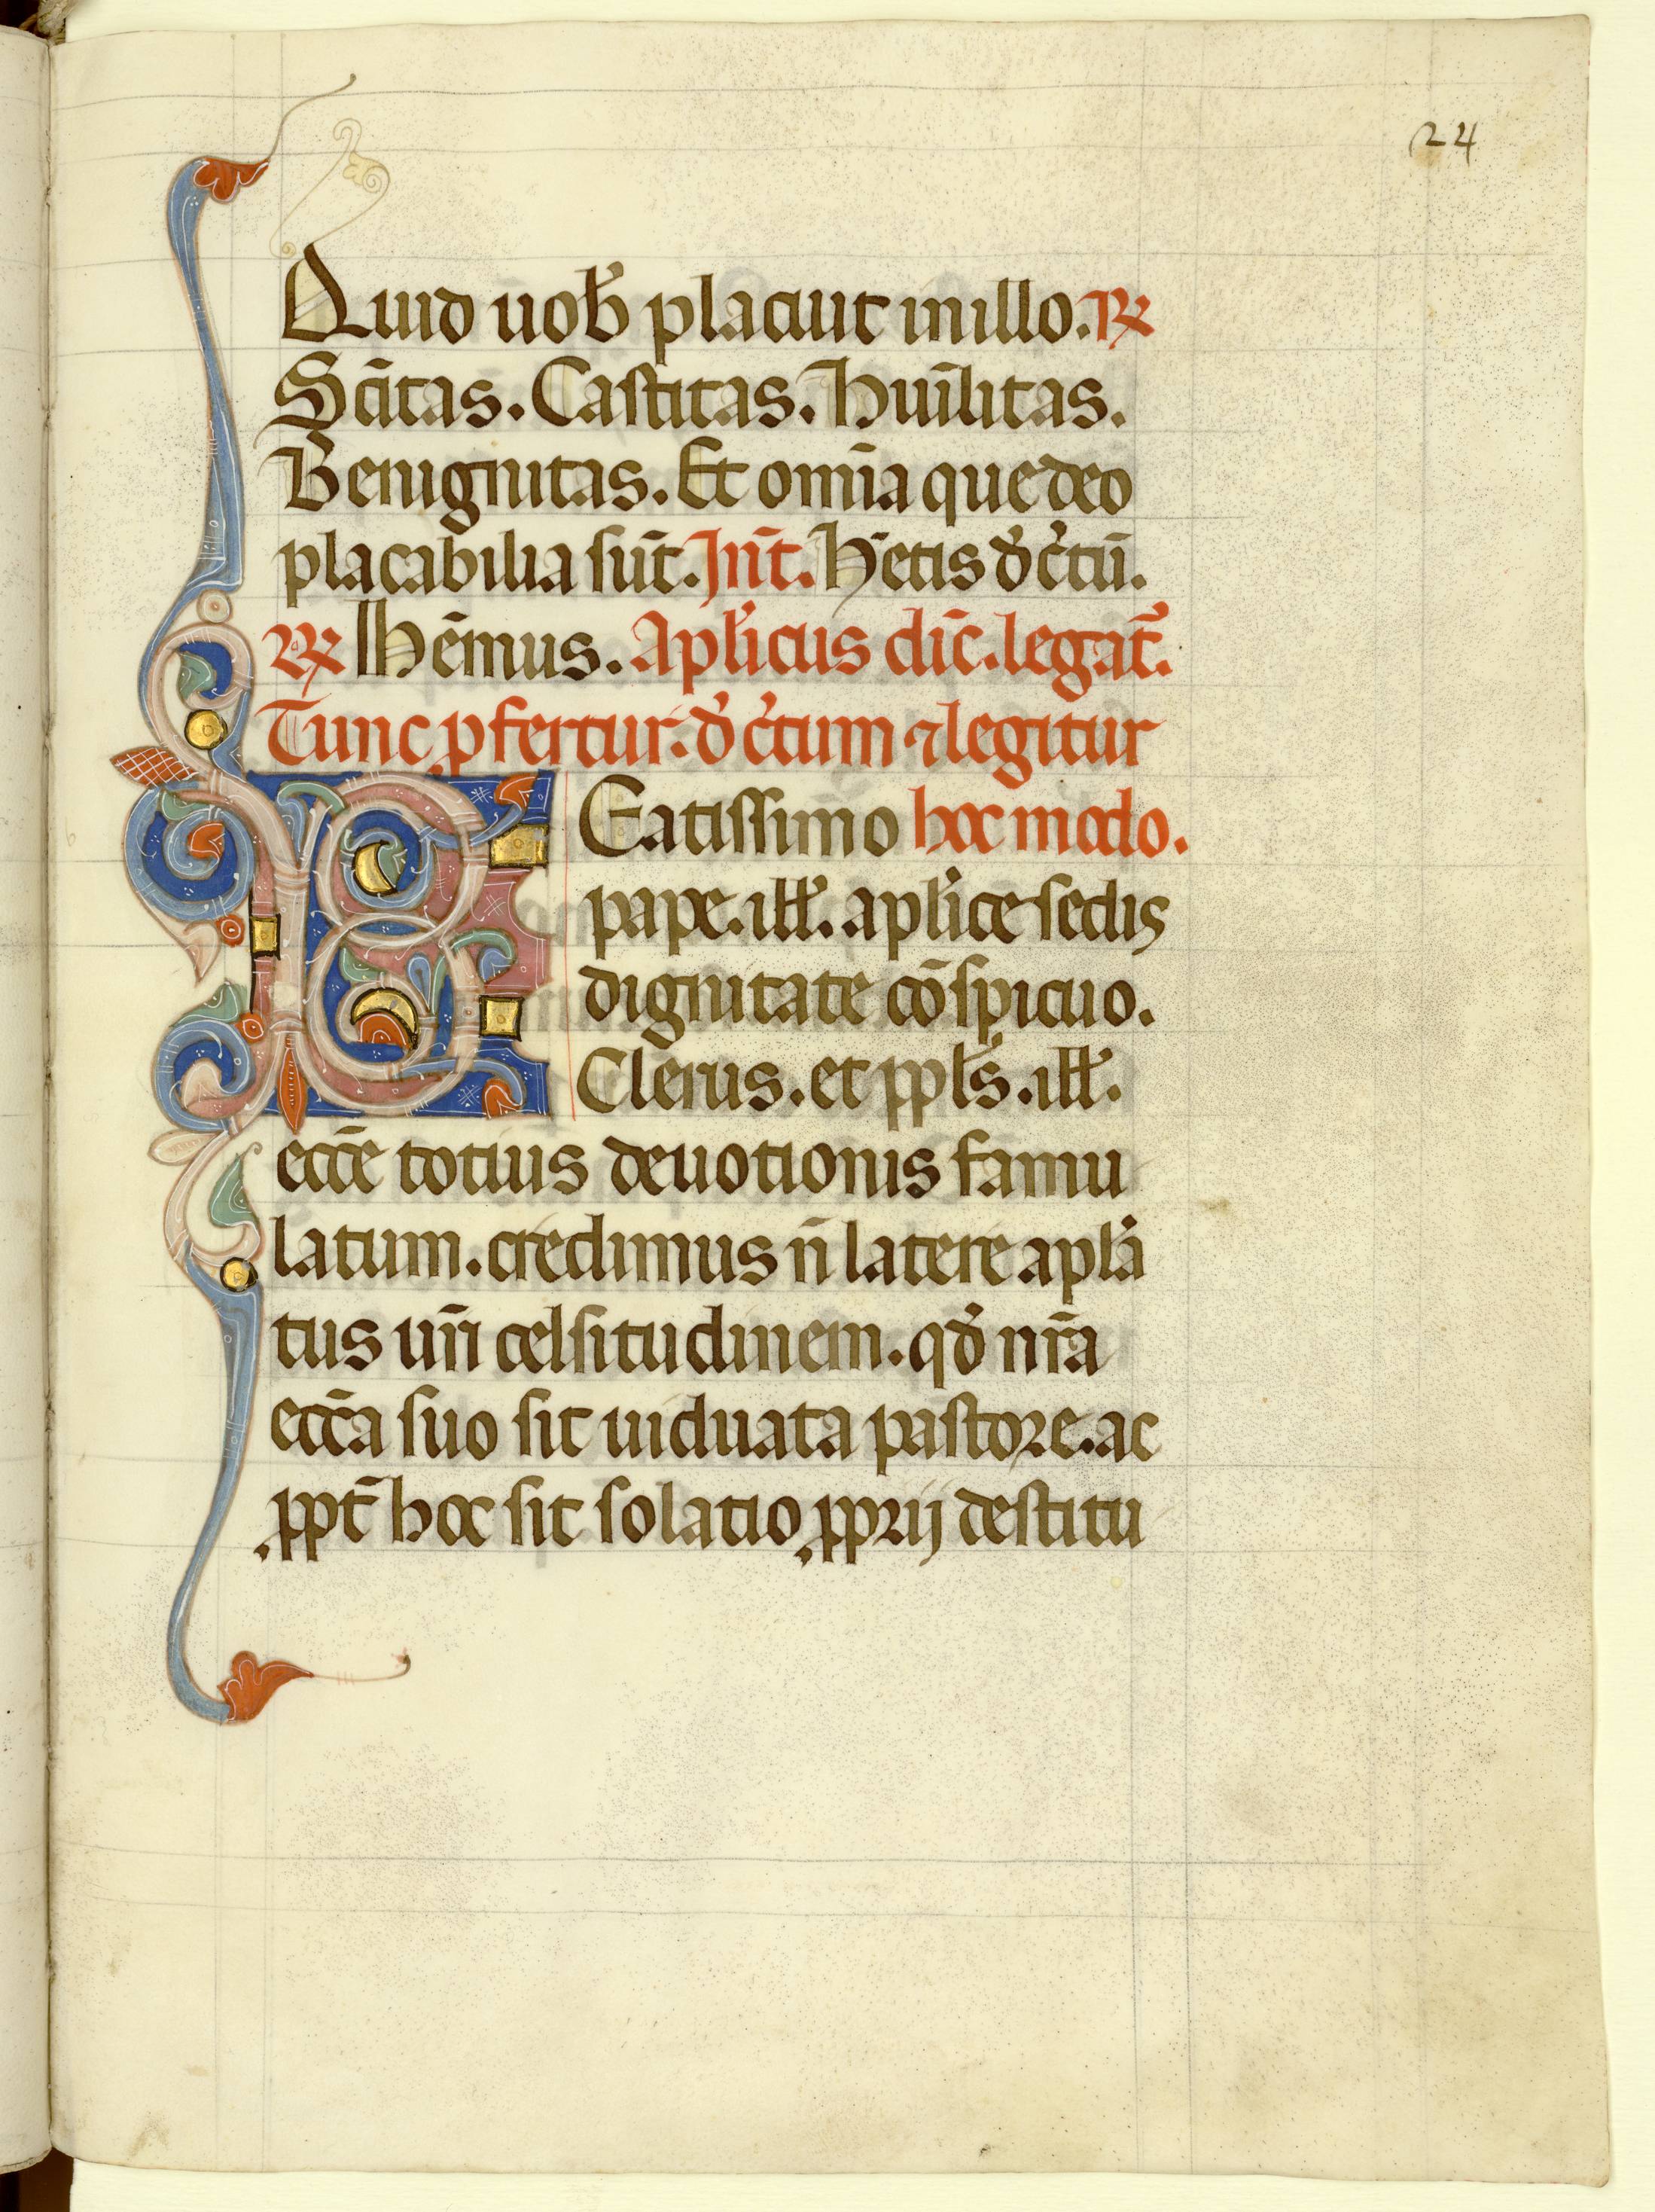 24
Quid uob̉ placuit in illo. ℟
Sc̄itas. Castitas. Huīlitas.
Benignitas. Et om̄ia que deo
placabilia sūt. Int̄. H̄etis d̉c̉tū.
℟ Hēmus. Apl̉icus dīc. legat̄.
Tunc ꝓfertur d̉c̉tum ⁊ legitur
BEatissimo hoc modo.
pape. ill̉. apl̉ice sedis
dignitate cōspicuo.
Clerus. et ppl̉s. ill̉.
ecc̄e totius deuotionis famu
latum. credimus n̄ latere apl̉a
tus ur̄i celsitudinem. qd̉ nr̄a
ecc̄a suo sit uiduata pastore. ac
ꝓpt̄ hoc sit solatio ꝓprij destitu